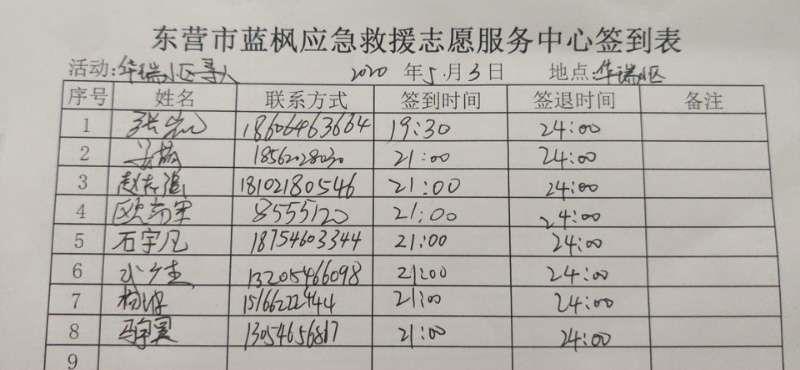 东营市蓝枫应急救援志愿服务中心签到表
活动:华瑞小区寻人 2020年5月3日 地点:华瑞小区
序号 姓名 联系方式 签到时间 签退时间 备注
1 张 18606463664 19:30 24:00
2 18562028030 21:00 24:00
3 赵志强 18102180546 21:00 24:00
4 欧 8555120 21:00 24:00
5 石宇凡 18754603344 21:00 24:00
6 13205466098 21:00 24:00
7 杨 15166222444 21:00 24:00
8 冯 13054656817 21:00 24:00
9